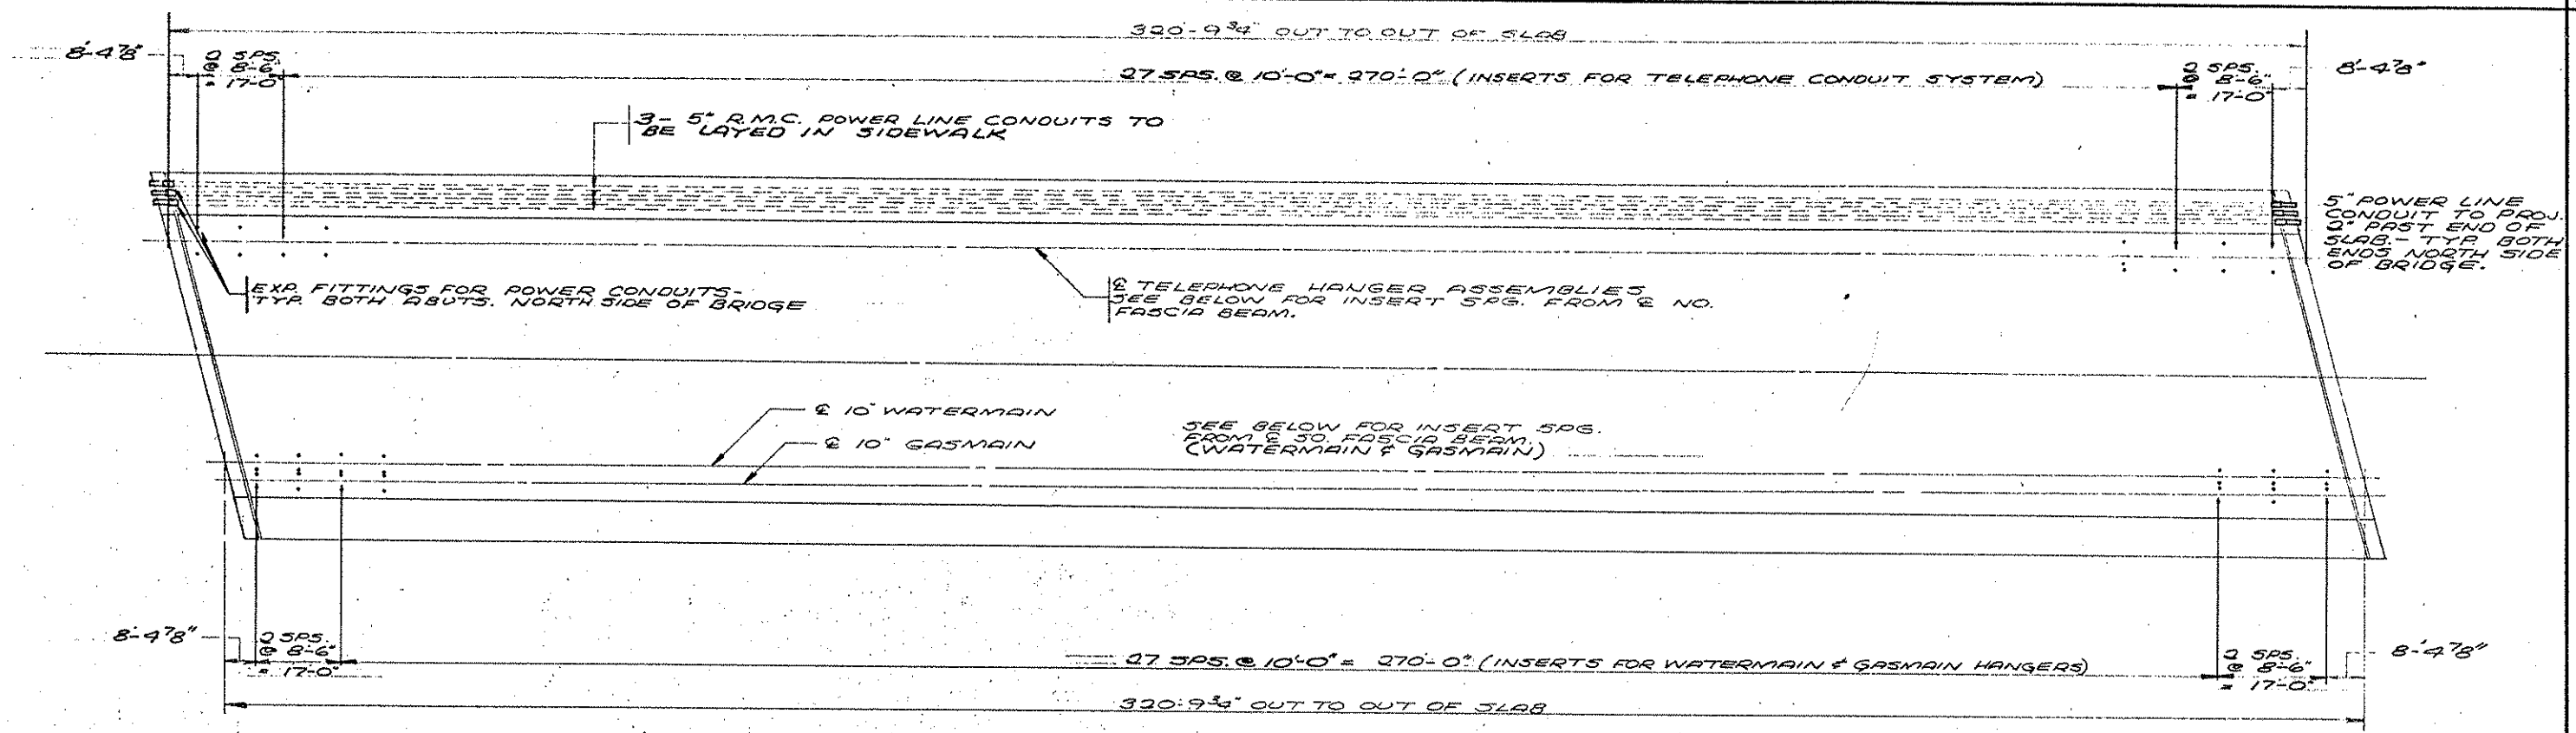 320'-9 3/4" OUT TO OUT OF SLAB
8'-4 7/8"
2 SPS.
@ 8'-6"
= 17'-0"
27 SPS. @ 10'-0" = 270'-0" (INSERTS FOR TELEPHONE CONDUIT SYSTEM)
2 SPS.
@ 8'-6"
= 17'-0"
8'-4 7/8"
3- 5" R.M.C. POWER LINE CONDUITS TO
BE LAYED IN SIDEWALK
5" POWER LINE
CONDUIT TO PROJ.
2" PAST END OF
SLAB.- TYP. BOTH
ENDS NORTH SIDE
OF BRIDGE.
EXP. FITTINGS FOR POWER CONDUITS-
TYP. BOTH ABUTS. NORTH SIDE OF BRIDGE
℄ TELEPHONE HANGER ASSEMBLIES
SEE BELOW FOR INSERT SPG. FROM ℄ NO.
FASCIA BEAM.
℄ 10" WATERMAIN
℄ 10" GASMAIN
SEE BELOW FOR INSERT SPG.
FROM ℄ SO. FASCIA BEAM.
(WATERMAIN & GASMAIN)
8'-4 7/8"
2 SPS.
@ 8'-6"
= 17'-0"
27 SPS. @ 10'-0" = 270'-0" (INSERTS FOR WATERMAIN & GASMAIN HANGERS)
2 SPS.
@ 8'-6"
= 17'-0"
8'-4 7/8"
320'-9 3/4" OUT TO OUT OF SLAB